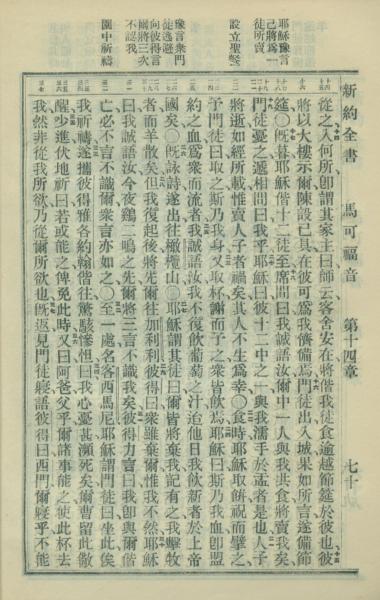 新約全書 馬可福音 第十四章 七十
耶穌豫言
己將爲一
徒所賣
設立聖餐
豫言衆門
徒逃避
向彼得言
爾將三次
不認我
園中祈禱
從之入何所卽謂其家主曰師云客舍安在將偕我徒食逾越節筵於彼也彼
將以大樓示爾陳設已具在彼可爲我儕備焉門徒出入城果如所言遂備節
筵〇既暮耶穌偕十二徒至席間曰我誠語汝爾中一人與我共食將賣我矣
門徒憂之遞相問曰我乎耶穌曰彼十二中之一與我濡手於盂者是也人子
將逝如經所載惟賣人子者禍矣其人不生爲幸〇食時耶穌取餅祝而擘之
予門徒曰取之斯乃我身又取杯謝而予之衆皆飲焉耶穌曰斯乃我血卽盟
約之血爲衆而流者我誠語汝我不復飲葡萄之汁迨他日我飲新者於上帝
國矣〇既詠詩遂出往橄欖山〇耶穌謂其徒曰爾皆將棄我記有之我擊牧
者而羊散矣但我復起後將先爾往加利利彼得曰衆雖棄爾惟我不然耶穌
曰我誠語汝今夜鷄二鳴之先爾將三言不識我矣彼得力言曰我卽與爾偕
亡必不言不識爾衆言亦如之〇至一處名客西馬尼耶穌謂門徒曰坐此俟
我祈禱遂攜彼得雅各約翰偕往驚駭慘怛曰我心憂甚瀕死矣爾曹留此儆
醒少進伏地祈曰若或能之俾免此時又曰阿爸父乎爾諸事能之使此杯去
我然非從我所欲乃從爾所欲也既返見門徒寢語彼得曰西門爾寢乎不能